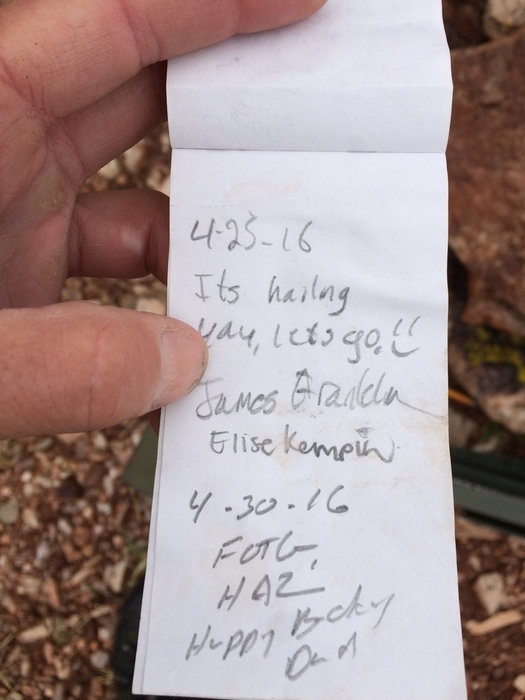 4-23-16
Its hailng
yay, lets go!!
James Franklin
Elise Kempin
4-30-16
FOTG,
HAZ
Happy Becky